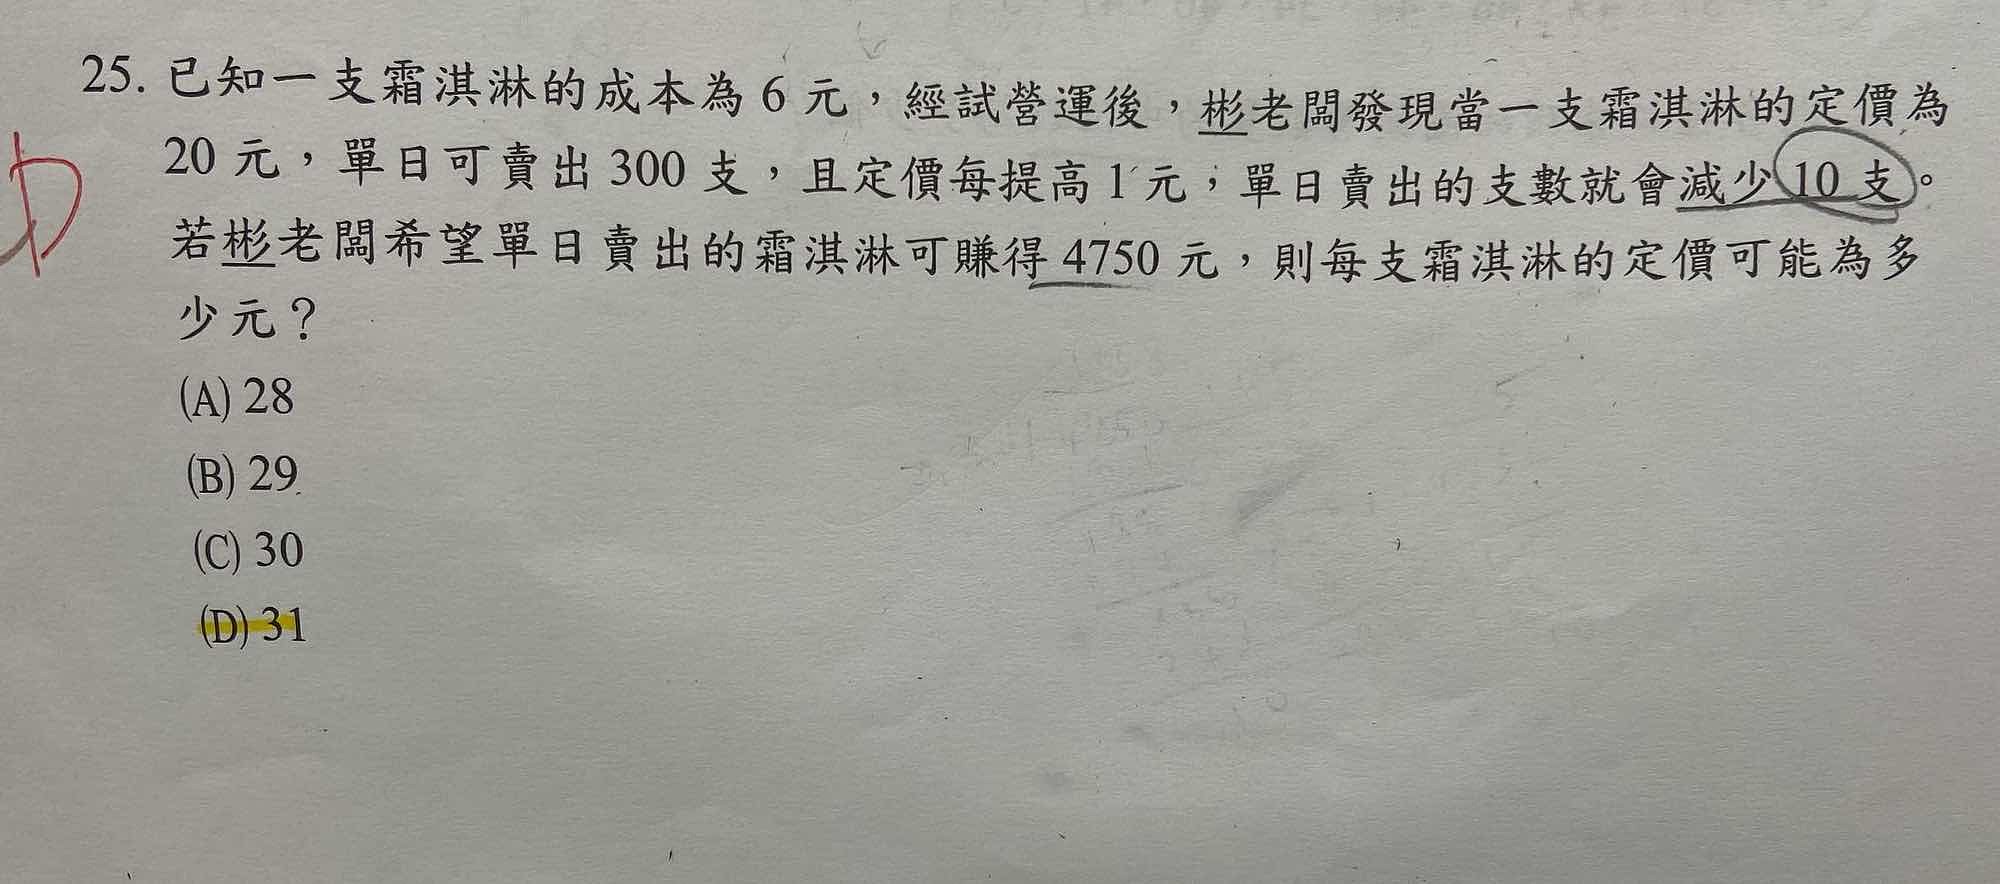 25. 已知一支霜淇淋的成本為 6 元，經試營運後，彬老闆發現當一支霜淇淋的定價為
20 元，單日可賣出 300 支，且定價每提高 1 元，單日賣出的支數就會減少 10 支。
若彬老闆希望單日賣出的霜淇淋可賺得 4750 元，則每支霜淇淋的定價可能為多
少元？
(A) 28
(B) 29
(C) 30
(D) 31
D